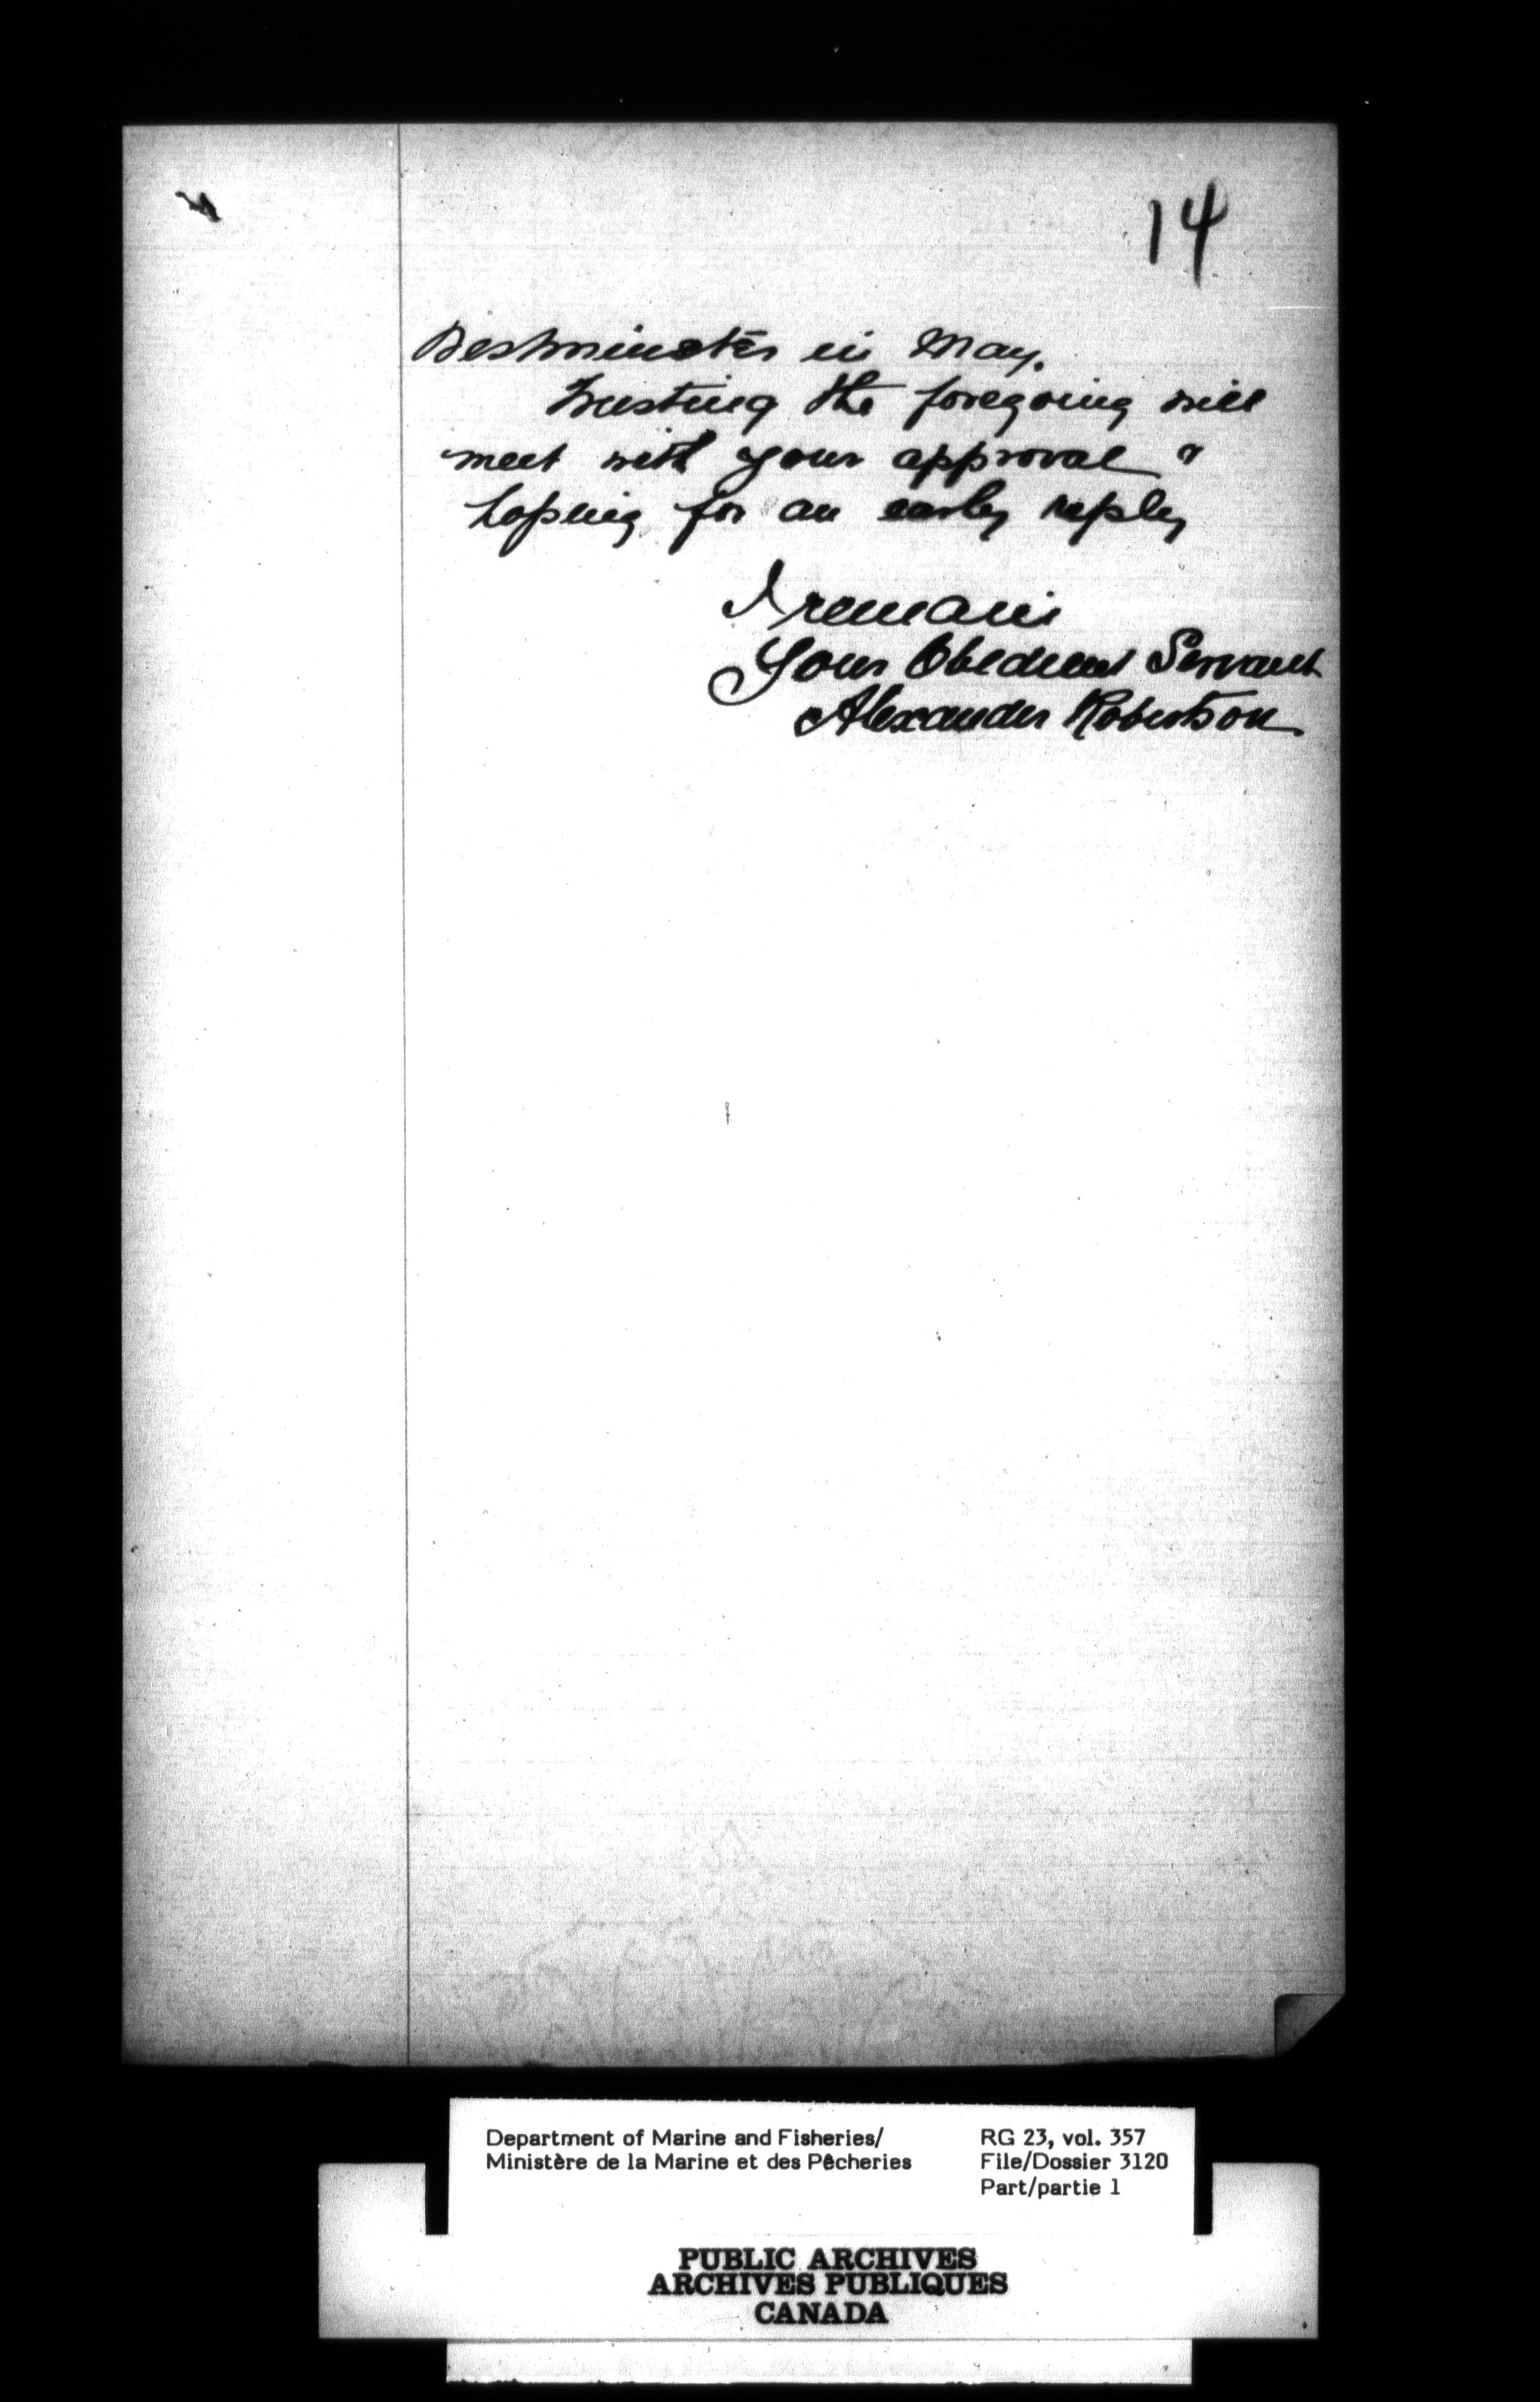 14
Westminster in May.
Trusting the foregoing will
meet with your approval &
hoping for an early reply
I remain
Your Obedient Servant
Alexander Robertson
Department of Marine and Fisheries/
Ministère de la Marine et des Pêcheries
RG 23, vol. 357
File/Dossier 3120
Part/partie 1
PUBLIC ARCHIVES
ARCHIVES PUBLIQUES
CANADA